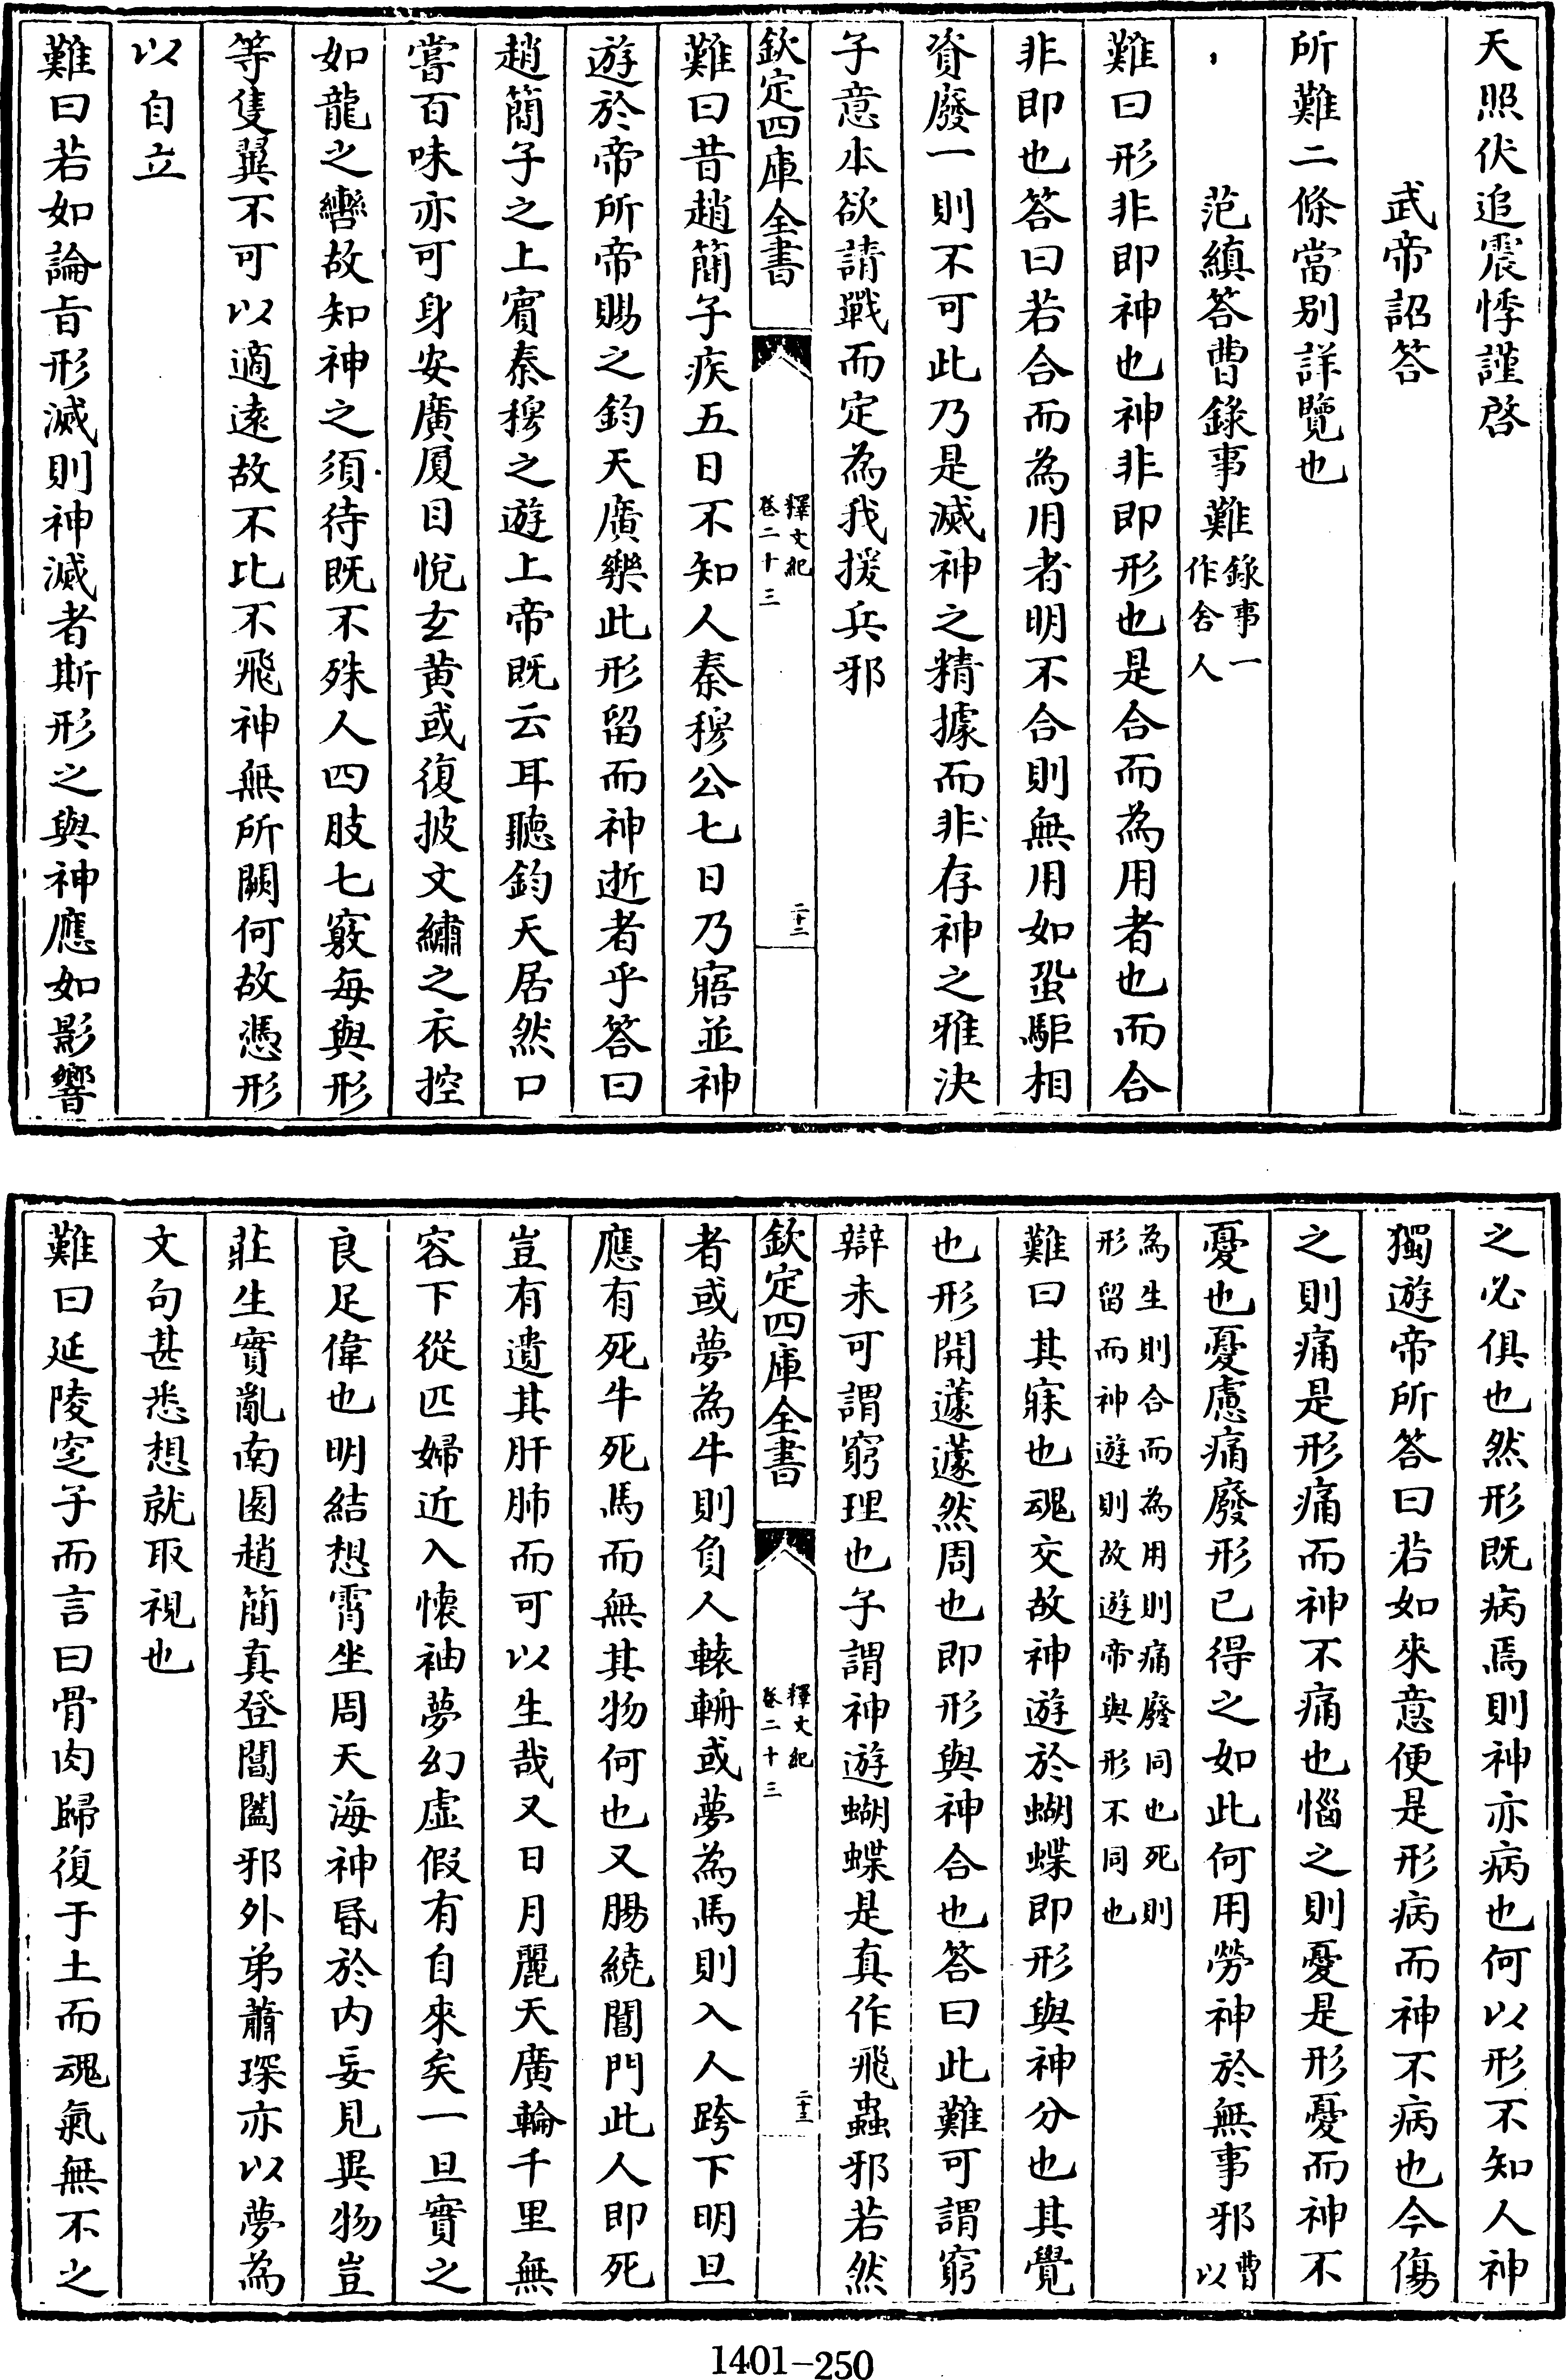 天照伏追震悸謹啓
武帝詔答
所難二條當别詳覽也
范縝答曹錄事難錄事一作舍人
難曰形非即神也神非即形也是合而為用者也而合
非即也答曰若合而為用者明不合則無用如蛩駏相
資廢一則不可此乃是滅神之精據而非存神之雅決
子意本欲請戰而定為我援兵邪
欽定四庫全書
釋文紀
卷二十三
二十二
難曰昔趙簡子疾五日不知人秦穆公七日乃寤並神
遊於帝所帝賜之鈞天廣樂此形留而神逝者乎答曰
趙簡子之上賓秦穆之遊上帝既云耳聽鈞天居然口
嘗百味亦可身安廣厦目悅玄黄或復披文繡之衣控
如龍之轡故知神之須待既不殊人四肢七竅每與形
等隻翼不可以適遠故不比不飛神無所闕何故憑形
以自立
難曰若如論旨形滅則神滅者斯形之與神應如影響
之必俱也然形既病焉則神亦病也何以形不知人神
獨遊帝所答曰若如來意便是形病而神不病也今傷
之則痛是形痛而神不痛也惱之則憂是形憂而神不
憂也憂慮痛廢形已得之如此何用勞神於無事邪曹以
為生則合而為用則痛廢同也死則
形留而神遊則故遊帝與形不同也
難曰其寐也魂交故神遊於蝴蝶即形與神分也其覺
也形開蘧蘧然周也即形與神合也答曰此難可謂窮
辯未可謂窮理也子謂神遊蝴蝶是真作飛蟲邪若然
欽定四庫全書
釋文紀
卷二十三
二十三
者或夢為牛則負人轅輈或夢為馬則入人跨下明旦
應有死牛死馬而無其物何也又腸繞閶門此人即死
豈有遺其肝肺而可以生哉又日月麗天廣輪千里無
容下從匹婦近入懷袖夢幻虚假有自來矣一旦實之
良足偉也明結想霄坐周天海神昬於内妄見異物豈
莊生實亂南園趙簡真登閶闔邪外弟蕭琛亦以夢為
文句甚悉想就取視也
難曰延陵窆子而言曰骨肉歸復于土而魂氣無不之
1401-250